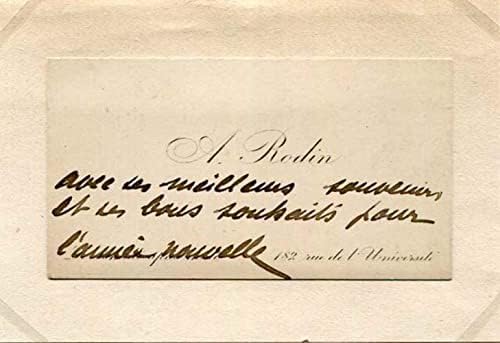 A. Rodin
avec ses meilleurs souvenirs
et ses bons souhaits pour
l'année nouvelle
182, rue de l'Université